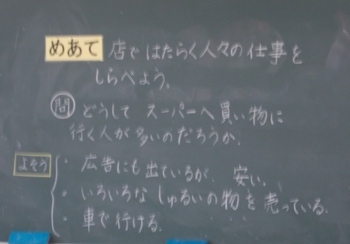 めあて 店ではたらく人々の仕事を
しらべよう。
問 どうして スーパーへ買い物に
行く人が多いのだろうか。
よそう ・広告にも出ているが、安い。
・いろいろなしゅるいの物を売っている。
・車で行ける。